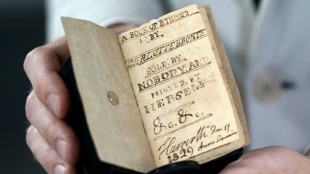 A BOOK OF RYMES
BY
CHARLOTTE BRONTE
SOLD BY
NOBODY AND
PRINTED BY
HERSELF
&c. &c
Haworth Dec 17
1829